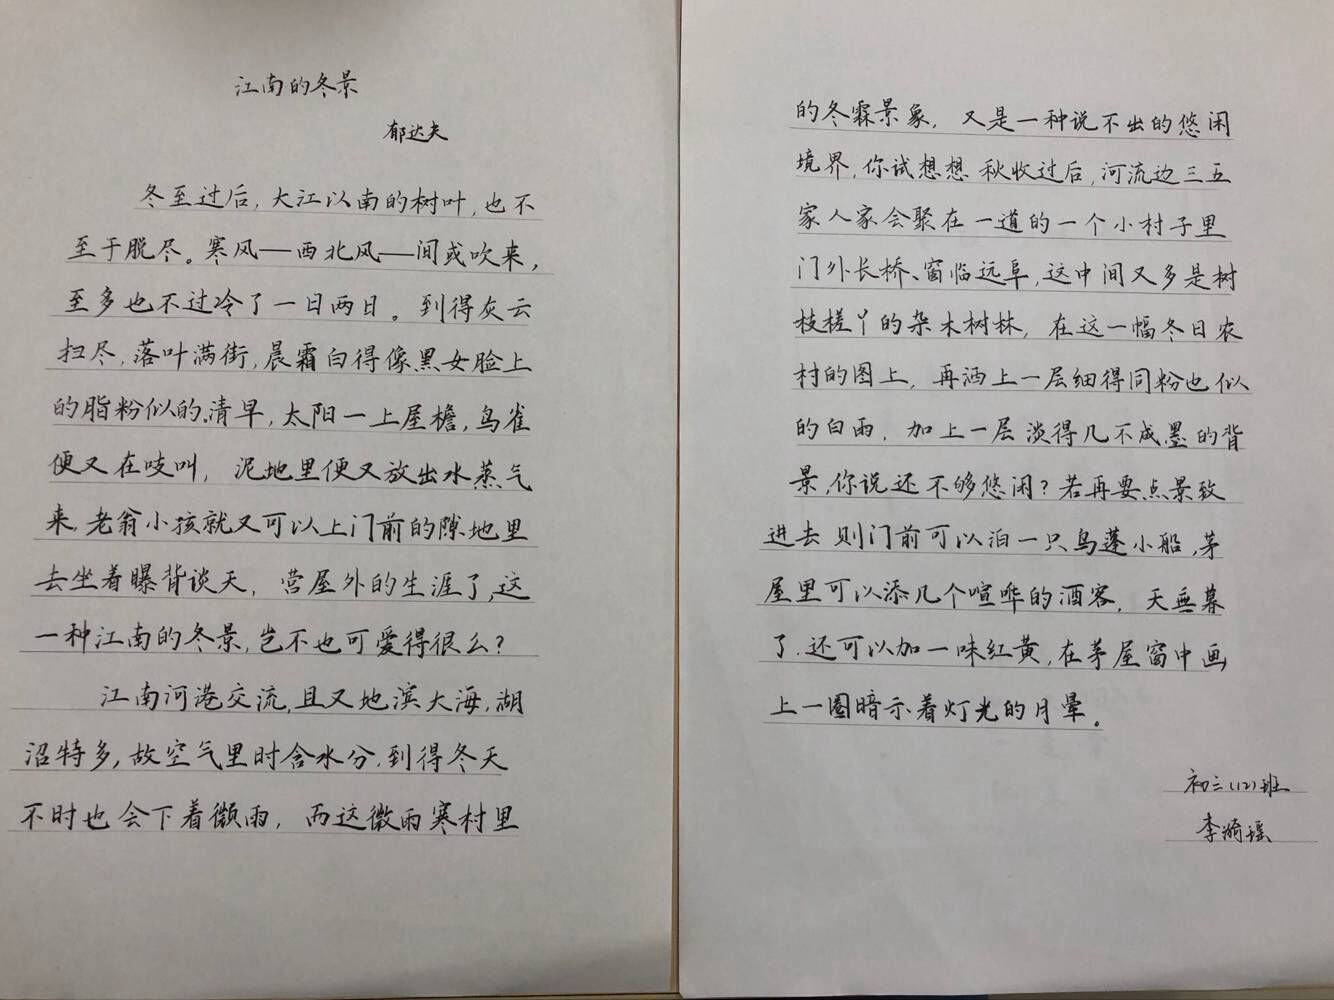 江南的冬景
郁达夫
冬至过后，大江以南的树叶，也不
至于脱尽。寒风——西北风——间或吹来，
至多也不过冷了一日两日。到得灰云
扫尽，落叶满街，晨霜白得像黑女脸上
的脂粉似的。清早，太阳一上屋檐，鸟雀
便又在吱叫，泥地里便又放出水蒸气
来，老翁小孩就又可以上门前的隙地里
去坐着曝背谈天，营屋外的生涯了，这
一种江南的冬景，岂不也可爱得很么？
江南河港交流，且又地滨大海，湖
沼特多，故空气里时含水分，到得冬天
不时也会下着微雨，而这微雨寒村里
的冬霖景象，又是一种说不出的悠闲
境界，你试想想 秋收过后，河流边三五
家人家会聚在一道的一个小村子里
门外长桥、窗临远阜，这中间又多是树
枝槎丫的杂木树林，在这一幅冬日农
村的图上，再洒上一层细得同粉也似
的白雨，加上一层淡得几不成墨的背
景，你说还不够悠闲？若再要点景致
进去 则门前可以泊一只乌蓬小船，茅
屋里可以添几个喧哗的酒客，天垂暮
了，还可以加一味红黄，在茅屋窗中画
上一圈暗示着灯光的月晕。
初三(12)班
李漪瑶